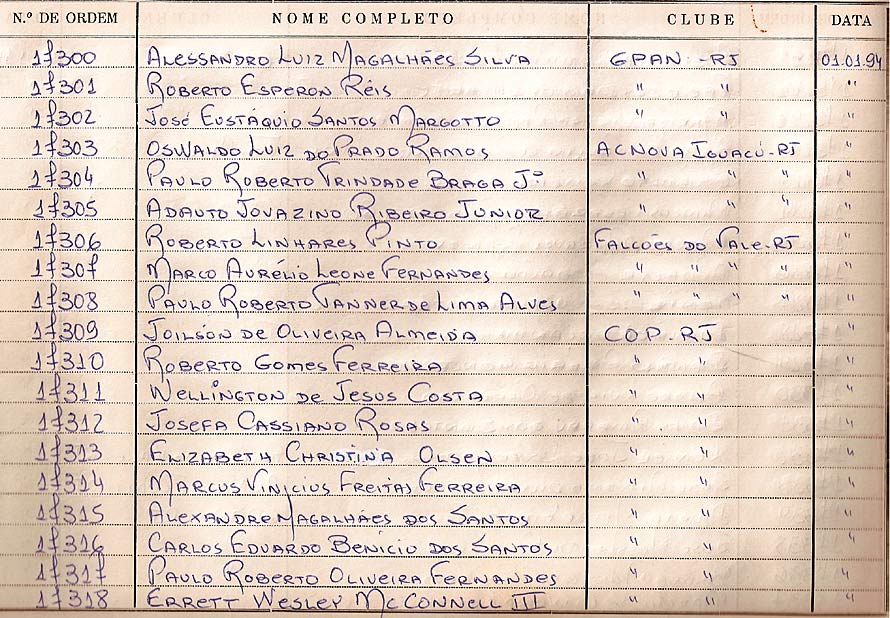 N.º DE ORDEM NOME COMPLETO CLUBE DATA
17300 ALESSANDRO LUIZ MAGALHÃES SILVA GPAN - RJ 01.01.94
17301 ROBERTO ESPERON RÉIS " " "
17302 JOSÉ EUSTÁQUIO SANTOS MARGOTTO " " "
17303 OSWALDO LUIZ DO PRADO RAMOS AC NOVA IGUAÇÚ - RJ "
17304 PAULO ROBERTO TRINDADE BRAGA Jº " " " "
17305 ADAUTO JOVAZINO RIBEIRO JUNIOR " " " "
17306 ROBERTO LINHARES PINTO FALCÕES DO VALE - RJ "
17307 MARCO AURÉLIO LEONE FERNANDES " " " " "
17308 PAULO ROBERTO TANNER DE LIMA ALVES " " " " "
17309 JOILSON DE OLIVEIRA ALMEIDA COP - RJ "
17310 ROBERTO GOMES FERREIRA " " "
17311 WELLINGTON DE JESUS COSTA " " "
17312 JOSEFA CASSIANO ROSAS " " "
17313 ELIZABETH CHRISTINA OLSEN " " "
17314 MARCUS VINICIUS FREITAS FERREIRA " " "
17315 ALEXANDRE MAGALHÃES DOS SANTOS " " "
17316 CARLOS EDUARDO BENICIO DOS SANTOS " " "
17317 PAULO ROBERTO OLIVEIRA FERNANDES " " "
17318 ERRETT WESLEY McCONNELL III " " "